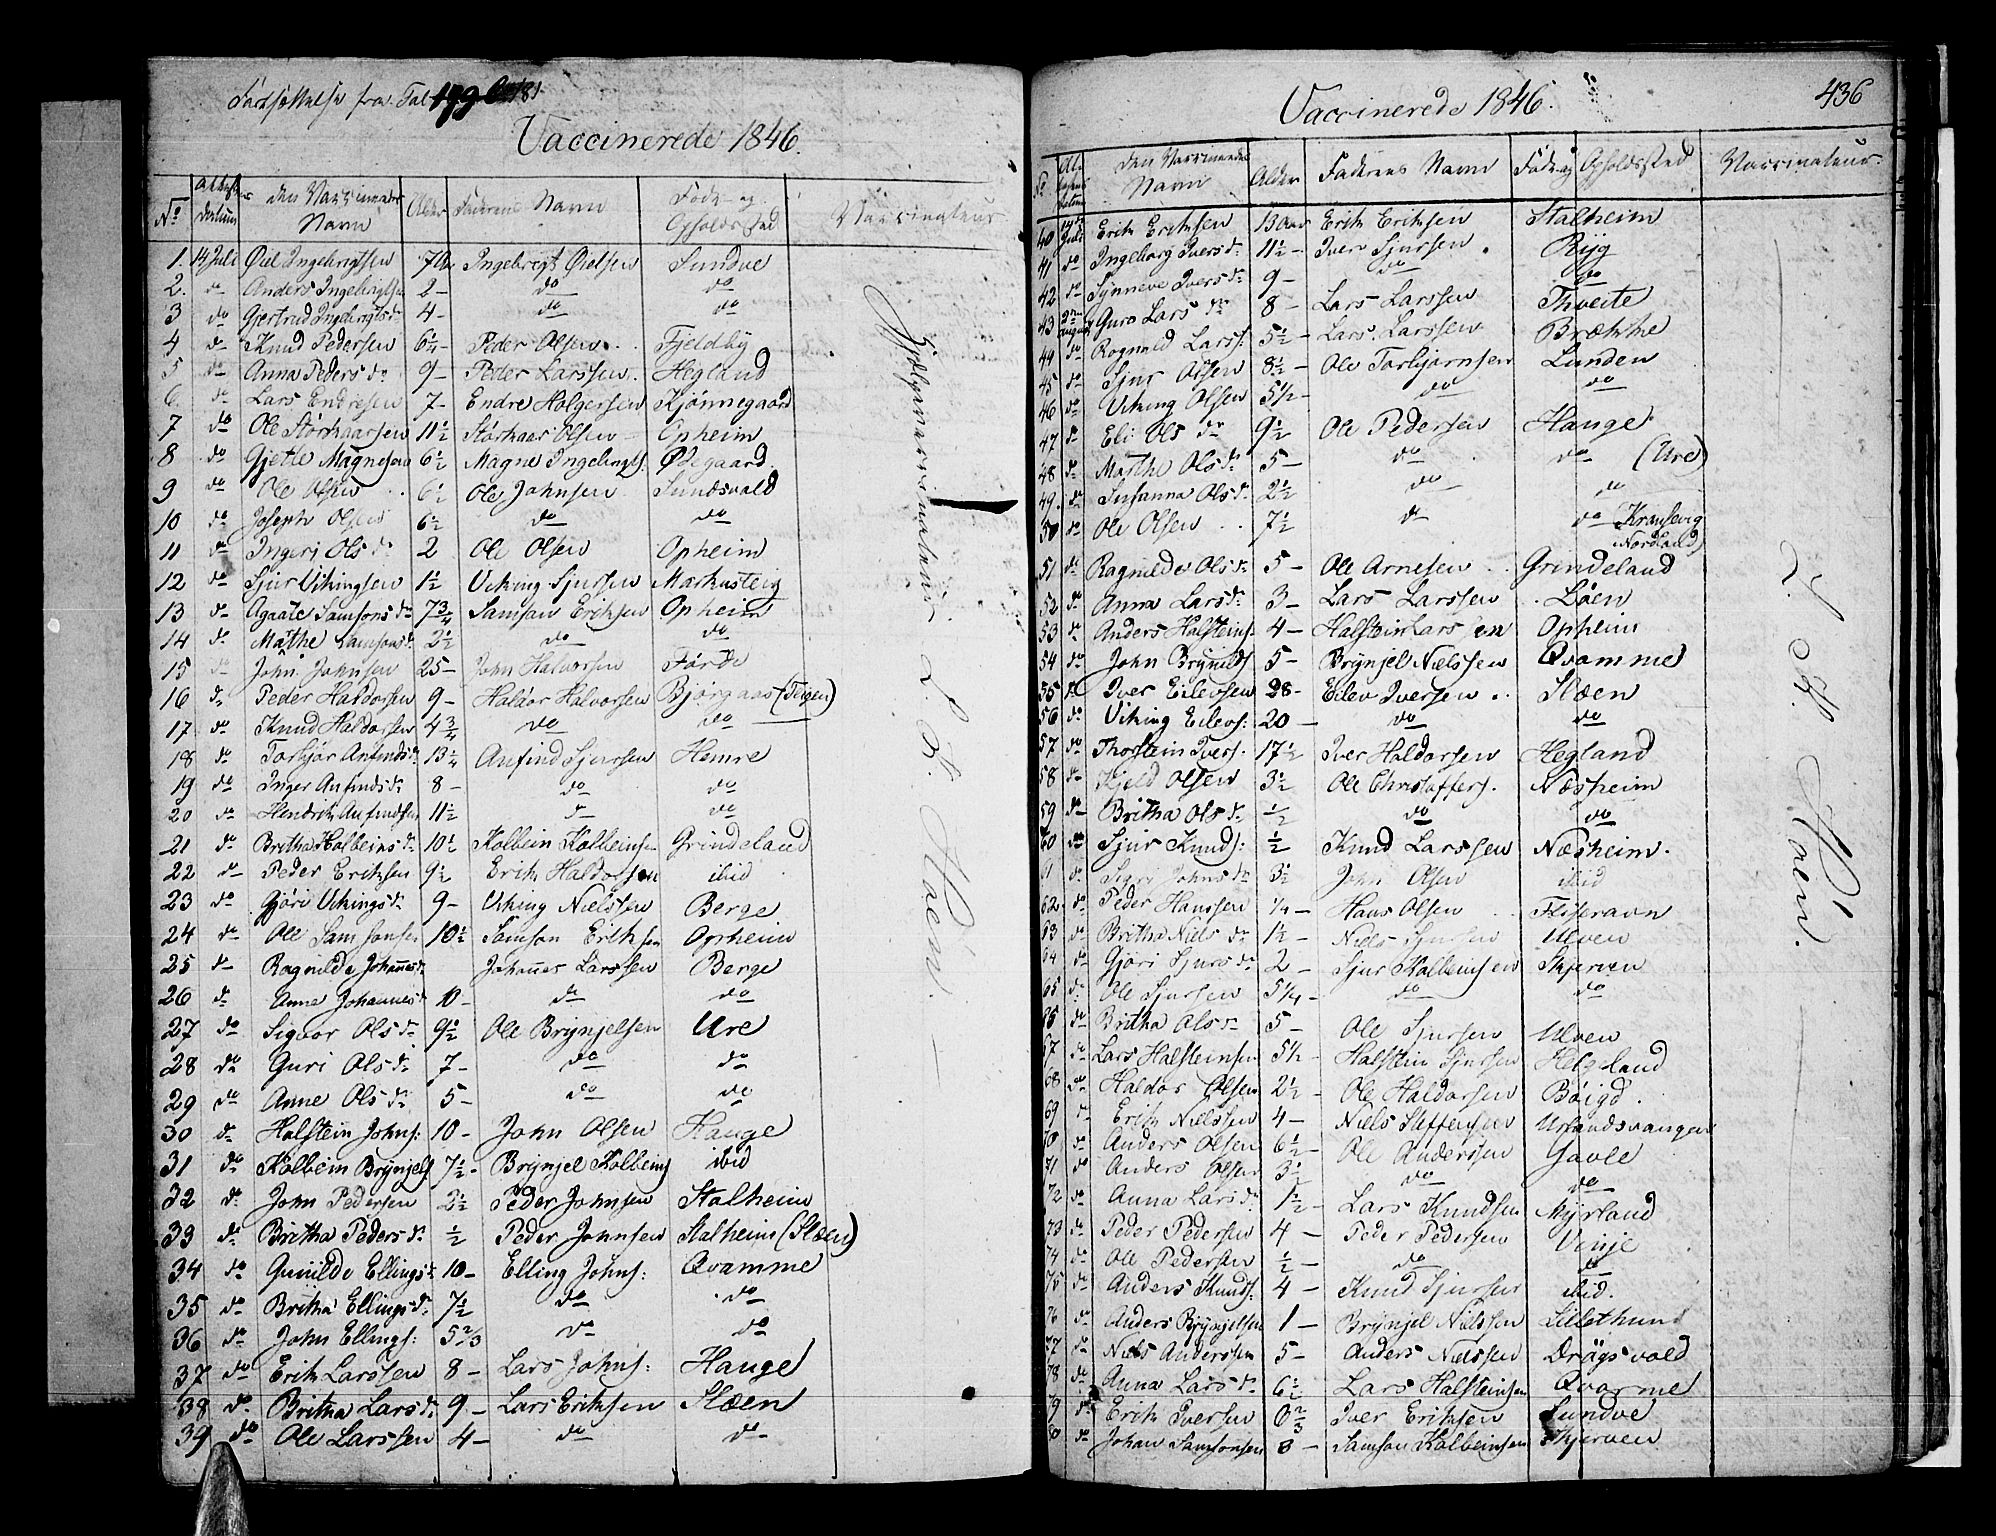 Fortsættelse fra Fol 181
Vaccinerede 1846.
No Attestens datum den Vaccineredes Navn Alder Faderens Navn Føde- og Opholdssted Vaccinateur
1. 14 Juli Øiel Ingebrigtsen 7 Ingebrigt Øielsen Sundve
2. do Anders Ingebrigtsen 2 - do do
3 do Gjertrud Ingebrigtsdr 4 - do do
4 do Knud Pedersen 6 1/4 Peder Olsen Fjeldby
5 do Anna Pedersdr 9 - Peder Larssen Hegland
6. do Lars Endresen 7 - Endre Holgersen Kjønnegaard
7 do Ole Størkaarsen 11 1/2 Størkaar Olsen Opheim
8 do Gjetle Magnesen 6 1/2 Magne Ingebrigts. Ødegaard
9 do Ole Olsen 6 1/2 Ole Johnsen Sundsvald
10 do Joseph Olsen 6 1/2 do do
11 do Ingeri Olsdr 2 Ole Olsen Opheim
12 do Sjur Vikingsen 1 1/2 Viking Sjursen Markusteig
13 do Agaate Samsonsdr 7 3/4 Samson Eriksen Opheim
14 do Mathe Samsonsdr 2 1/2 do do
15 do John Johnsen 25 - John Halvorsen Førde
16 do Peder Haldorsen 9 - Haldor Halvorsen Bjørgaas (Teigen)
17 do Knud Haldorsen 4 3/4 do do
18 do Torbjør Anfindsdr 13 1/4 Anfind Sjursen Hemre
19 do Inger Anfindsdr 8 - do do
20 do Hendrik Anfindsen 11 1/2 do do
21 do Britha Kolbeinsdr 10 1/2 Kolbein Kolbeinsen Grindeland
22 do Peder Eriksen 9 1/2 Erik Haldorsen ibid
23 do Gjøri Vikingsdr 9 - Viking Nielssen Berge
24 do Ole Samsonsen 10 1/2 Samson Eriksen Opheim
25 do Ragnilde Johannesdr Johannes Larssen Berge
26 do Anne Johannesdr 10 - do do
27 do Sigvor Olsdr 9 1/2 Ole Brynjelsen Ure
28 do Guri Olsdr 7 - do do
29 do Anne Olsdr 5 - do do
30 do Halstein Johns: 10 - John Olsen Hauge
31 do Kolbein Brynjels 7 1/2 - Brynjel Kolbeins ibid
32 do John Pedersen 2 1/2 Peder Johnsen Stalheim
33 do Britha Pedersdr 1/2 Peder Johnsen Stalheim (Sloen)
34 do Gunilde Ellingsdr 10 - Elling Johns: Qvamme
35 do Britha Ellingsdr 7 1/2 do do
36 do John Ellings: 5 2/3 do do
37 do Erik Larssen 8 - Lars Johns: Hauge
38 do Britha Larsdr 9 - Lars Eriksen Sloen
39 do Ole Larssen 4 - do do
L. K. Høein.
Vaccinerede 1846.
436
den Vaccineredes Navn Alder Faderens Navn Føde- og Opholdssted Vaccinateur.
40 14de Juli Erik Eriksen 13 Aar Erik Eriksen Stalheim
41 do Ingeborg Iversdr 11 1/2 - Iver Sjursen Ryg
42 do Synneve Iversdr 9 - do do
43 august Guro Larsdr 8 - Lars Larssen Thveite
44 do Rognald Larss: 5 1/2 - Lars Larssen Brække
45 do Sjur Olsen 8 1/2 - Ole Torbjørnsen Lunden
46 do Viking Olsen 5 1/2 - do do
47 do Eli Olsdr 9 1/2 Ole Pedersen Hauge
48 do Marthe Olsdr 5 - do do (Ure)
49. do Susanna Olsdr 2 1/2 do do
50 do Ole Olsen 7 1/2 do do
Nordland)
51 do Ragnilde Olsdr 5 - Ole Arnesen Grindeland
52 do Anna Larsdr 3 - Lars Larssen Løen
53 do Anders Halsteins. 4 - Halstein Larssen Opheim
54 do John Brynilds 5 - Brynjel Nielssen Qvamme
55 do Iver Eilevsen 28 - Eilev Iversen Sloen
56 do Viking Eilevs: 20 - do do
57 do Thorstein Ivers. 17 1/2 Iver Haldorsen Hegland
58 do Kjeld Olsen 3 1/2 Ole Christoffers. Næsheim
59 do Britha Olsdr 1/2 do do
60 do Sjur Knuds: 1/2 Knud Larssen Næsheim.
61 do Sigri Johnsdr 3 1/2 John Olsen ibid
62 do Peder Hanssen 1/4 - Hans Olsen Fliseravn
63 do Britha Nielsdr 1 1/2 - Niels Sjursen Ulven
64 do Gjøri Sjursdr 2 - Sjur Kolbeinsen Skjerven
65 do Ole Sjursen 5 1/4 - do do
66 do Britha Olsdr 5 - Ole Sjursen Ulven
67 do Lars Halsteinsen 5 1/2 - Halstein Sjursen Helgeland
68 do Haldor Olsen 2 1/2 - Ole Haldorsen Bøigd.
69 do Erik Nielssen 4 - Niels Steffensen Urlandsvangen
70 do Anders Olsen 6 1/2 - Ole Anderssen Gavle
71 do Anders Olsen 3 1/2 do do
72 do Anna Larsdr 1 1/2 - Lars Knudsen Myrland
73 do Peder Pedersen 4 - Peder Pedersen Vinje
74 do Ole Pedersen 1/2 - do do
75 do Anders Knuds: 4 - Knud Sjursen ibid.
76 do Anders Brynjelsen 1 - Brynjel Nielssen Lillethund
77 do Niels Anderssen 5 - Anders Nielssen Drägsvold
78 do Anna Larsdr 6 1/2 Lars Halsteinsen Qvarme
79 do Erik Iversen 0 2/3 Iver Eriksen Sundve
80 do Johan Samsonsen 8 - Samson Kolbeinsen Skjerven
L. K. Høein.